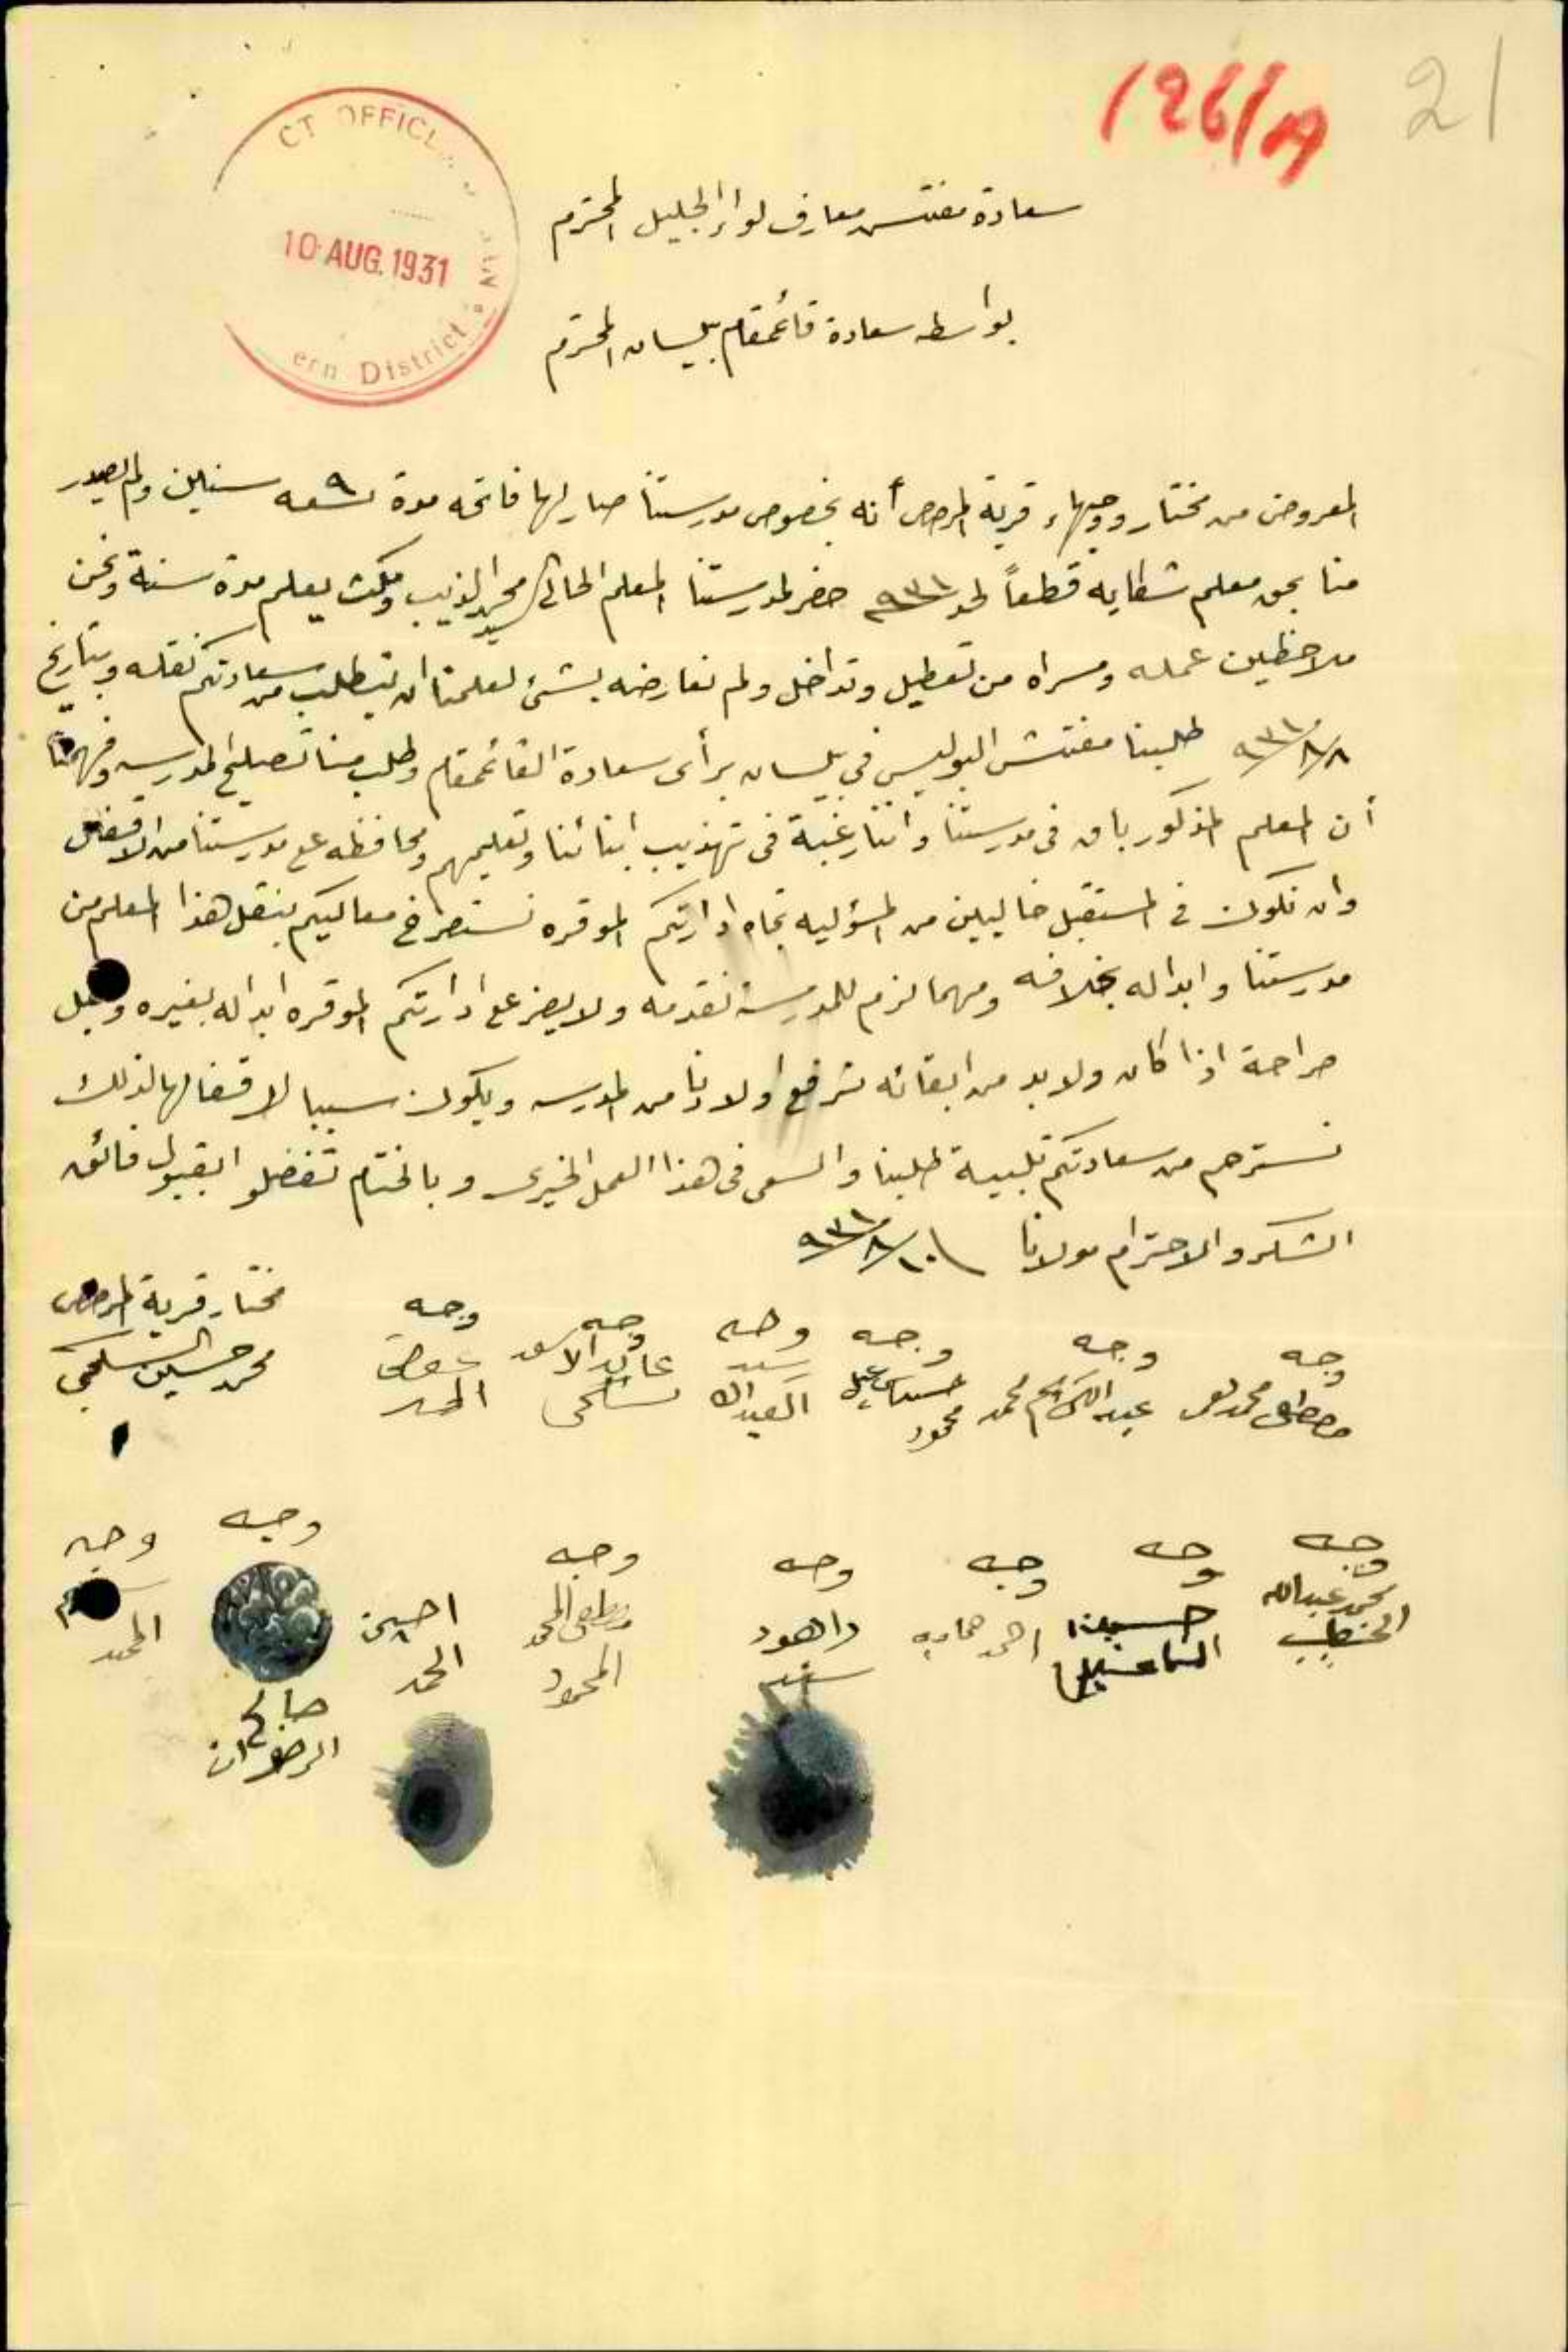 21
126/A
CT OFFICE
10 AUG. 1931
ern District
سعادة مفتش معارف لواء الجليل المحترم
بواسطه سعادة قائمقام بيسان المحترم
المعروض من مختار ووجهاء قرية المرصص أنه بخصوص مدرستنا صار لها فاتحه مدة تسعه ٩ سنين ولم يصدر
منا بحق معلم شكايه قطعاً لحد ٩٣١ حضر لمدرستنا المعلم الحالي السيد محمد الذيب ومكث يعلم مدة سنة ونحن
ملاحظين عمله ومسراه من تعطيل وتداخل ولم نعارضه بشئ لعلمنا ان يتطلب من سعادتكم نقله وبتاريخ
٨/٨/٩٣١ طلبنا مفتش البوليس في بيسان برأى سعادة القائمقام وطلب منا تصليح المدرسه وفهمنا
أن المعلم المذكور باق في مدرستنا واننا رغبة في تهذيب ابنائنا وتعليمهم ومحافظه على مدرستنا من الاقفال
وان نكون في المستقبل خاليين من المسؤليه تجاه ادارتكم الموقره نسترحم معاليكم بنقل هذا المعلم من
مدرستنا وابداله بخلافه ومهما لزم للمدرسة نقدمه ولا يضر على ادارتكم الموقره ابداله بغيره وبكل
صراحة اذا كان ولا بد من ابقائه نرفع اولادنا من المدرسه ويكون سببا لاقفالها لذلك
نسترحم من سعادتكم تلبية طلبنا والسعى في هذا العمل الخيرى وبالختام تفضلو ابقبول فائق
الشكر والاحترام مولانا ١٠/٨/٩٣١
وجه وجه وجه وجه وجه وجه مختار قرية المرصص
مصطفى محمد عبد الكريم محمد حسن اسماعيل محمود سيد العبدالله عايد الاسعد عوض الحمد محمد حسين
وجه وجه وجه وجه وجه وجه وجه
محمد عبدالله الخطيب حسين اسماعيل احمد حمادي داهود سيد مصطفى المحمد المحمود احسين الحمد صالح الرضوان المحمد